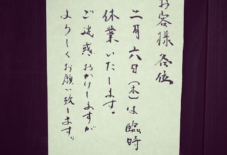 お客様各位
二月六日(木)は臨時
休業いたします。
ご迷惑おかけしますが
よろしくお願い致します。